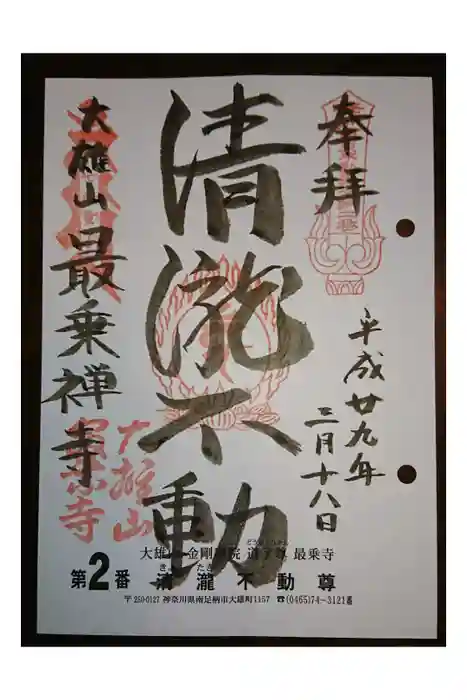 奉拝
平成廿九年
三月十八日
清瀧不動
大雄山最乗禅寺
大雄山
最乗寺
大雄山 金剛壽院 道了尊 最乗寺
どうりょうそん
第2番 清瀧不動尊
きよ たき
〒250-0127 神奈川県南足柄市大雄町1157 ☎(0465)74-3121番